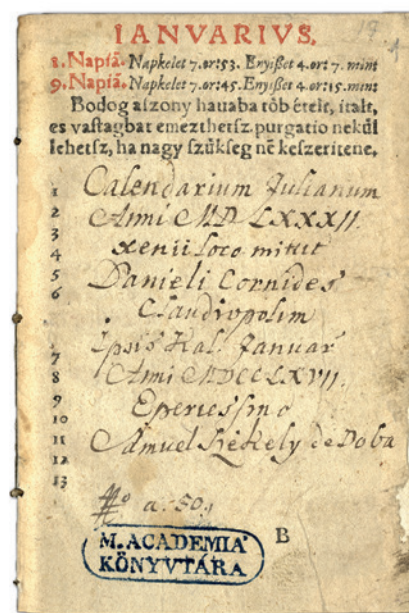 IANVARIVS.
8. Napiā. Napkelet 7. or: 53. Enyißet 4. or: 7. mint
9. Napiā. Napkelet 7. or: 45. Enyißet 4. or: 15. mint
Bodog aſzony hauaba tôb êtelt, italt,
es vaſtagbat emezthetſz. purgatio nekûl
lehetſz, ha nagy ſzûkſeg nē keſzeritene.
1 Calendarium Julianum
2 Anni MDLXXXII
3
4 xenii loco mittit
5 Danieli Cornides
6 Claudiopolim
Ipsis Kal. Januar
7
8 Anni MDCCLXVII.
9 Eperiessino
10
11 Samuel Székely de Doba
12
13
a. 50.
M. ACADEMIA
KÖNYVTÁRA
B